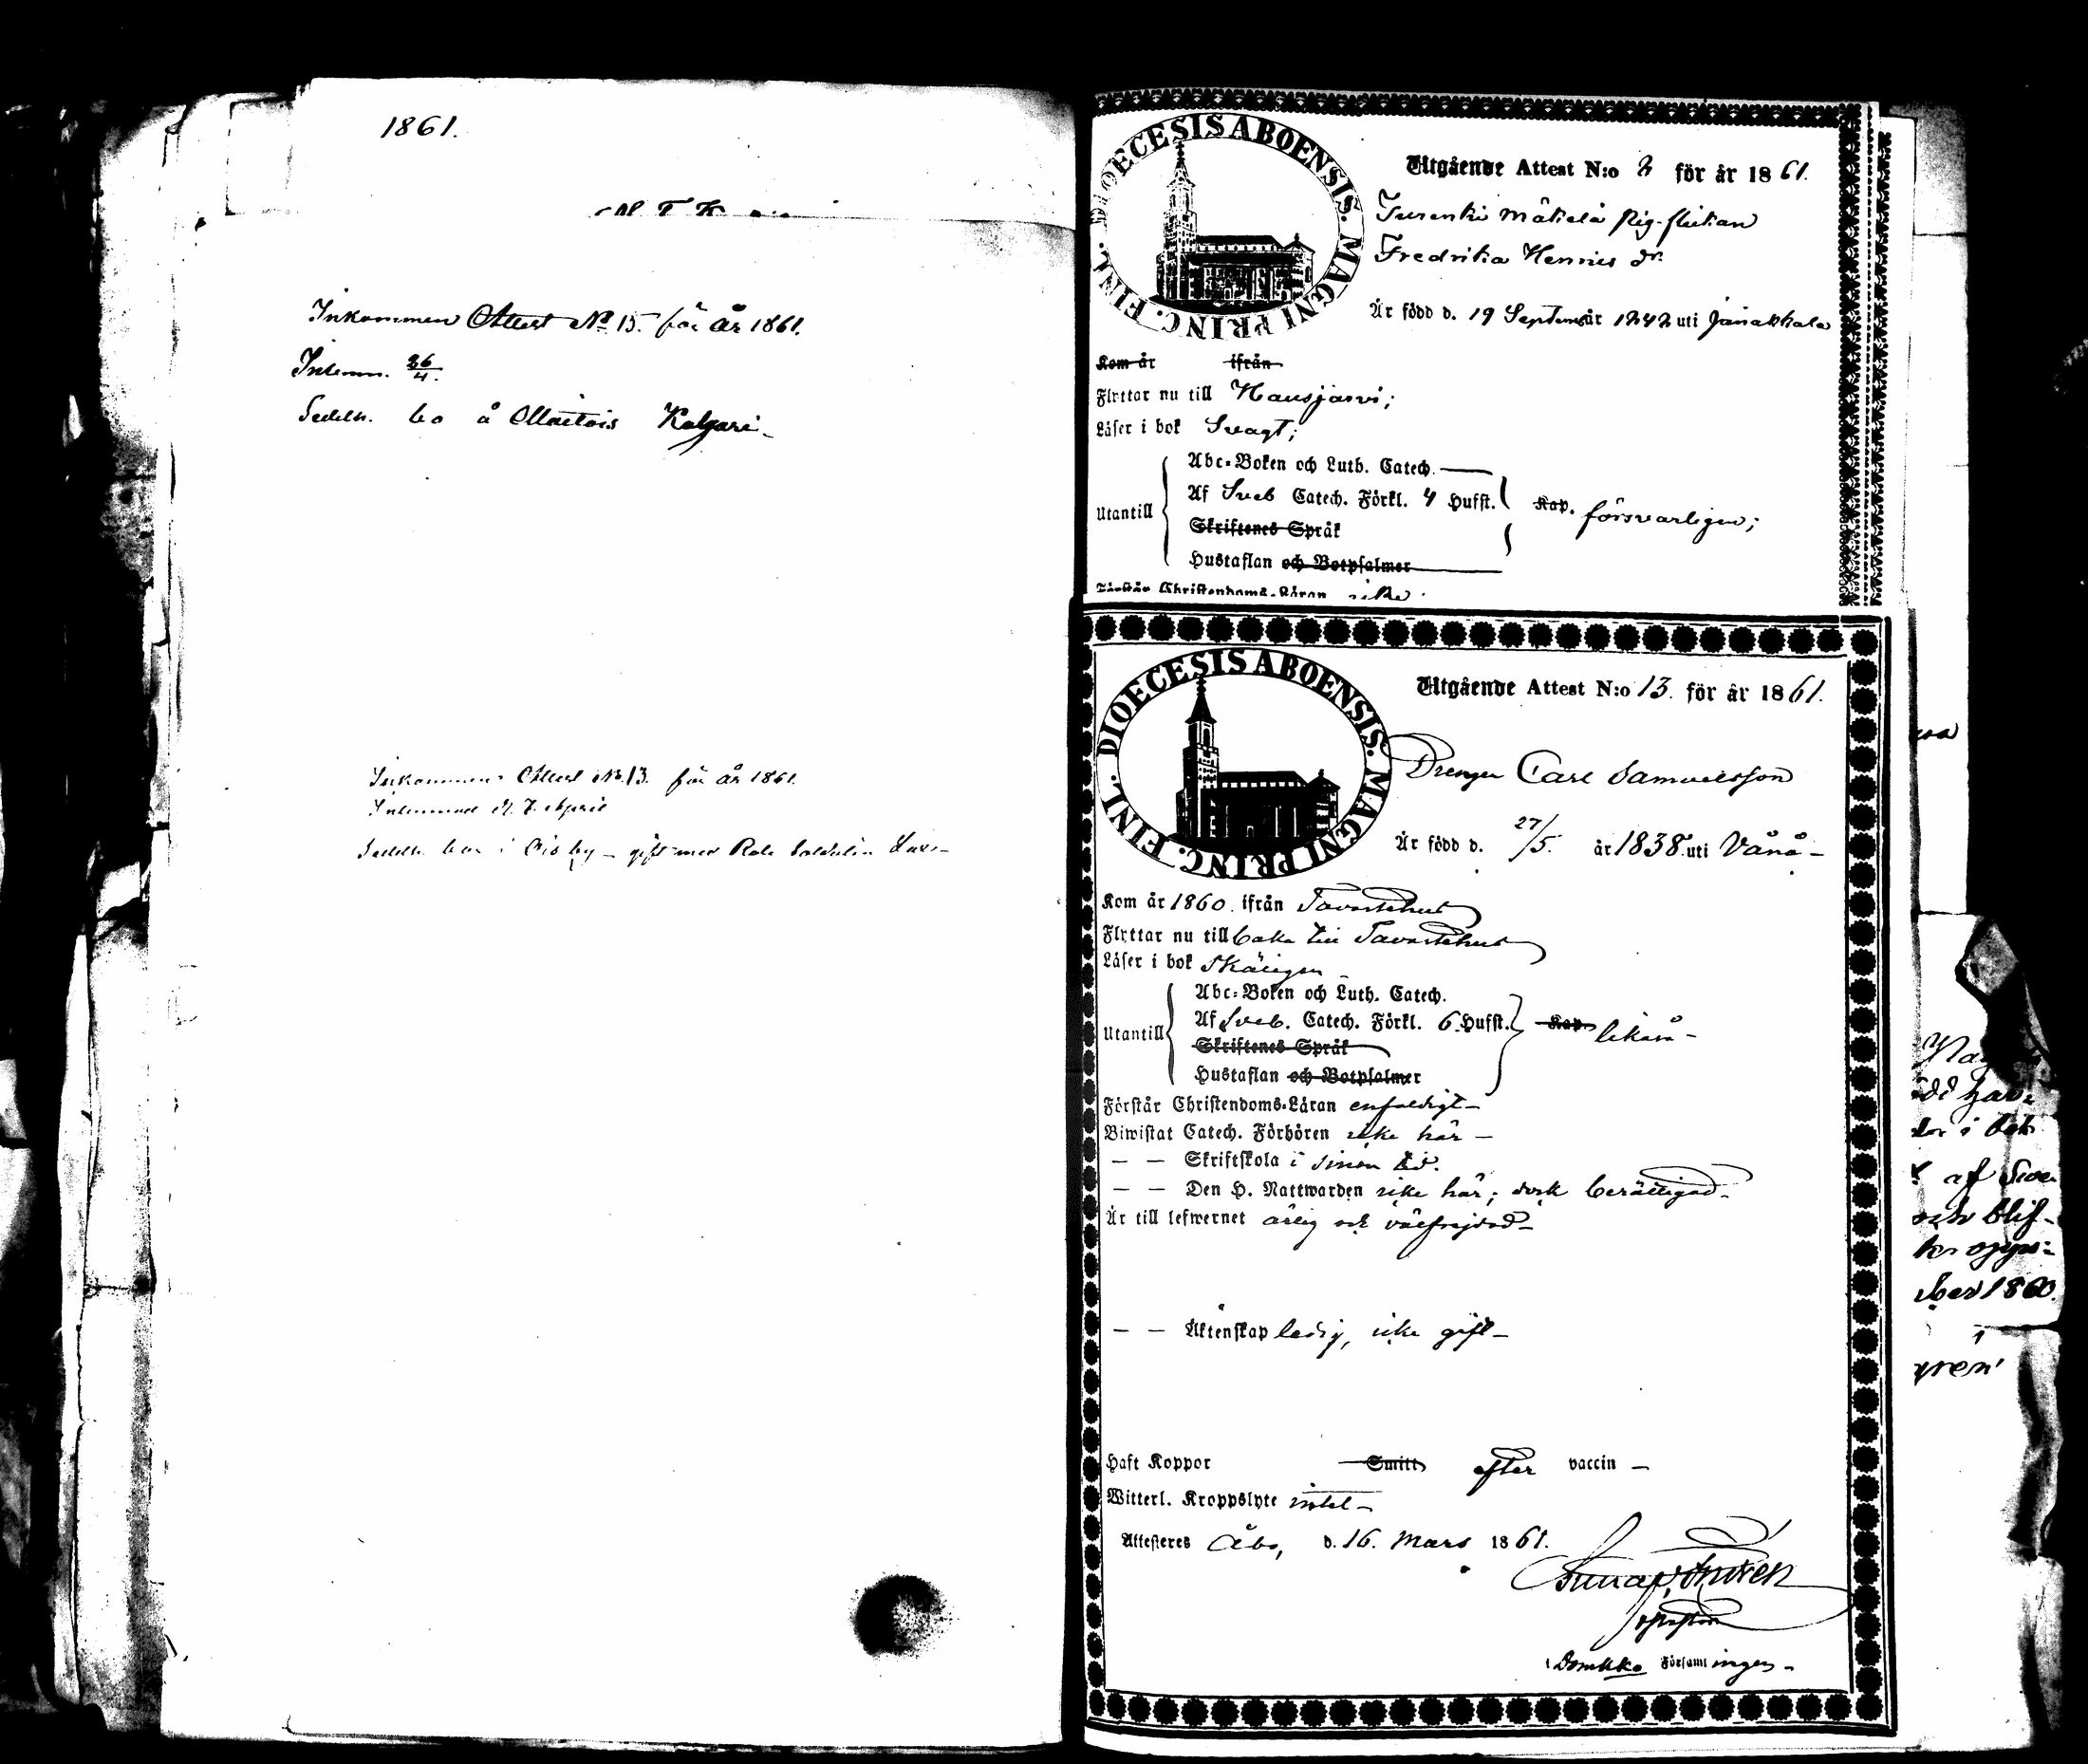 1861.
Inkommen Attest No 15. för år 1861.
Inlemn. 26/4.
Sedeln. bo å
Inkommen Attest No. 13. för år 1861.
Inlemnad d. 7. April
Sedeln. bor i Oisby – gift med
DIOECESIS ABOENSIS. MAGNI PRINC. FINL.
Utgående Attest N:o 2 för år 1861.
Turenki Mäkelä pig-flickan
Fredrika Henrics dr.
Är född d. 19 September år 1842 uti Janakkala
Kom år ifrån
Flyttar nu till Hausjärvi;
Läser i bok Svagt;
Utantill
Abc-Boken och Luth. Catech.
Af Sveb Catech. Förkl. 4 Hufst.
Skriftenes Språk
Hustaflan och Botpsalmer
Kap. försvarligen;
Förstår Christendoms-Läran icke
DIOECESIS ABOENSIS. MAGNI PRINC. FINL.
Utgående Attest N:o 13. för år 1861.
Drengen Carl Samuelsson
Är född d. 27/5. år 1838 uti Vånå –
Kom år 1860. ifrån Tavastehus
Flyttar nu till baka till Tavastehus
Läser i bok Skäligen
Utantill
Abc-Boken och Luth. Catech.
Af Sveb. Catech. Förkl. 6. Hufst.
Skriftenes Språk
Hustaflan och Botpsalmer
Kap. likaså –
Förstår Christendoms-Läran enfaldigt –
Biwistat Catech. Förhören icke här –
— — Skriftskola i sinom tid.
— — Den H. Nattwarden icke här; dock berättigad –
Är till lefwernet ärlig och välfrejdad –
— — Äktenskap ledig, icke gift –
Haft Koppor Smitt efter vaccin –
Witterl. Kroppslyte intet –
Attesteres Åbo, d. 16. Mars 1861.
Församlingen –
af Sve
och blif-
ber 1860.